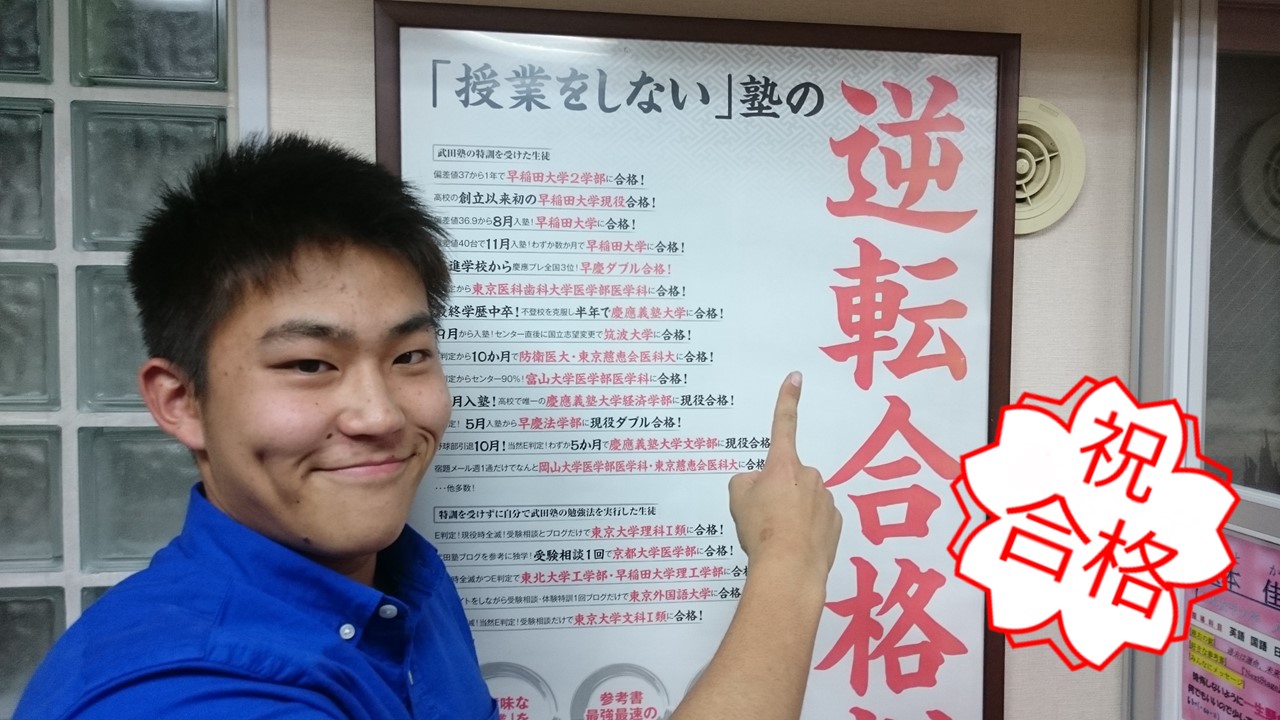 「授業をしない」塾の
逆転合格
武田塾の特訓を受けた生徒
偏差値37から1年で早稲田大学2学部に合格!
高校の創立以来初の早稲田大学現役合格!
偏差値36.9から8月入塾!早稲田大学に合格!
偏差値40台で11月入塾!わずか数か月で早稲田大学に合格!
進学校から慶應プレ全国3位!早慶ダブル合格!
定から東京医科歯科大学医学部医学科に合格!
最終学歴中卒!不登校を克服し半年で慶應義塾大学に合格!
9月から入塾!センター直後に国立志望変更で筑波大学に合格!
判定から10か月で防衛医大・東京慈恵会医科大に合格!
定からセンター90%!富山大学医学部医学科に合格!
月入塾!高校で唯一の慶應義塾大学経済学部に現役合格!
定!5月入塾から早慶法学部に現役ダブル合格!
野球部引退10月!当然E判定!わずか5か月で慶應義塾大学文学部に現役合格
宿題メール週1通だけでなんと岡山大学医学部医学科・東京慈恵会医科大に合格!
…他多数!
特訓を受けずに自分で武田塾の勉強法を実行した生徒
E判定!現役時全滅!受験相談とブログだけで東京大学理科Ⅰ類に合格!
武田塾ブログを参考に独学!受験相談1回で京都大学医学部に合格!
時全滅かつE判定で東北大学工学部・早稲田大学理工学部に合
イトをしながら受験相談・体験特訓1回ブログだけで東京外国語大学に合格
滅!当然E判定!受験相談だけで東京大学文科Ⅰ類に合格!
味な
参考書
最強最速の
祝
合格
本 佳
英語 国語 日